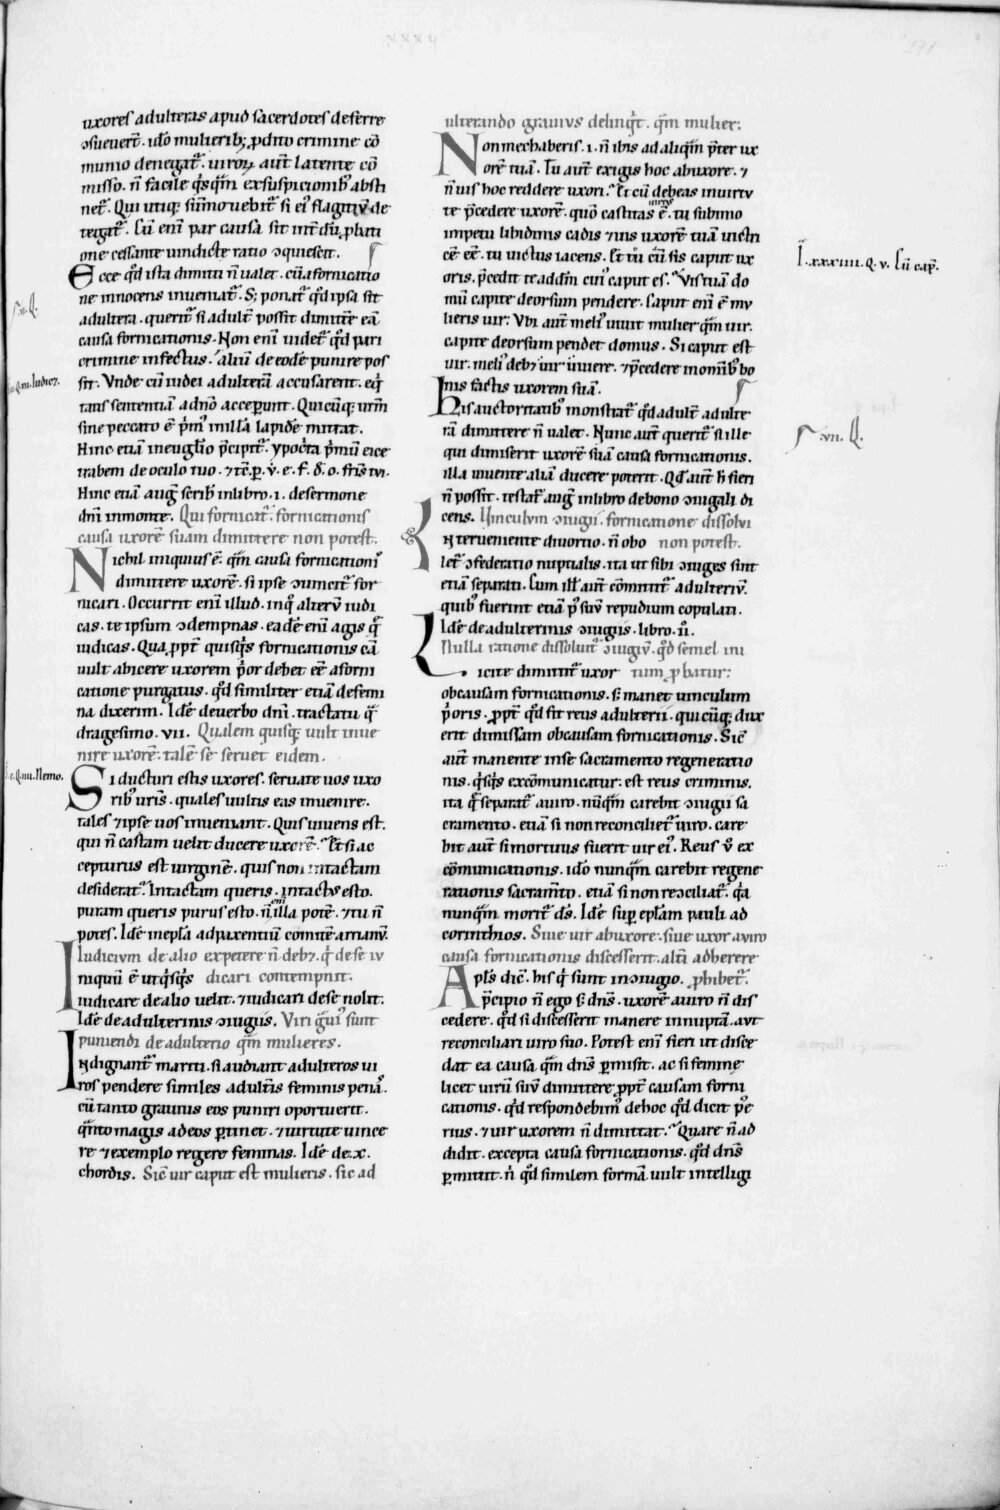 uxores adulteras apud sacerdotes deferre
ↄsueuer̄t. id̄o mulierib; ꝓdito crimine cō
munio denegat᷑. uiroꝝ aūt latente cō
misso. n̄ facile q̇sq̄m ex suspicionib᷒ absti
net᷑. Qui utiq; sūmouebit᷑ si ei᷒ flagitiū de
tegat᷑. Cū eni par causa sit int᷑dū, ꝓbati
one cessante uindicte ratio ↄquiescit.
Ecce qd̄ ista dimitti n̄ ualet. cū a fornicatio
ne innocens inueniat᷑. S; ponat᷑ qd̄ ipsa sit
adultera. querit᷑ si adult᷑ possit dimitt̄e eā
causa fornicationis. Non enī uidet᷑ qd̄ pari
crimine infectus. aliū de eodē punire pos
sit. Vnde cū iudei adulterā accusarent. eq̇
tatis sententiā a dn̄o acceperunt. Quicūq; ur̄m
sine peccato ē p̄m᷒ in illā lapidē mittat.
Hinc etiā in euglio p̄cipit᷑. ypoc̄ta p̄mū eice
trabem de oculo tuo. ⁊ tē. ꝑ. v̄. e. f. d̄. o. fr̄is tui.
Hinc etiā aug᷑ scrib᷑ in libro .i. de sermone
dn̄i in monte. Qui fornicat᷑. fornicationis
causa uxorē suam dimittere non potest.
Nichil iniquius ē. q̄m causa fornicationi᷒
dimittere uxorē. si ipse ↄuincit᷑ for
nicari. Occurrit enī illud. in q᷒ alterū iudi
cas. te ipsum ↄdempnas. eadē enī agis q̄
iudicas. Qua ꝓpt᷑ quisq̇s fornicationis cā
uult abicere uxorem p̄or debet eē a forni
catione purgatus. qd̄ similiter etiā de femi
na dixerim. Idē de uerbo dn̄i. tractatu q̄
dragesimo .vii. Qualem quisq; uult inue
nire uxorē. talē se seruet eidem.
Si ducturi estis uxores. seruate uos uxo
rib᷒ ur̄is. quales uultis eas inuenire.
tales ⁊ ipse uos inueniant. Quis iuuens est.
qui n̄ castam uelit ducere uxorē. Et si ac
cepturus est uirginē. quis non intactam
desiderat᷑. Intactam queris. intactus esto.
puram queris purus esto. n̄ enī illa potē. ⁊ tu n̄
potes. Idē in epl̄a ad puxentiū comitē arrianū.
Iudicium de alio expetere n̄ deb;. q̇ de se iu
niquū ē ut q̇sq̇s dicari contempnit.
iudicare de alio uelit. ⁊ iudicari de se nolit.
Idē de adulterinis ↄiugiis. Viri gui᷒ sunt
puniendi de adulterio q̄m mulieres.
Indignant᷑ mariti. si audiant adulteros ui
ros pendere similes adult̄is feminis penā.
cū tanto grauius eos puniri oportuerit.
q̄nto magis ad eos ꝑtinet. ⁊ uirtute uince
re ⁊ exemplo regere feminas. Idē de .x.
chordis. Sic̄ uir caput est mulieris. sic ad
ulterando grauius delinq̇t. q̄m mulier:
Non mechaberis. i. n̄ ibis ad aliq̄m p̄ter ux
orē tuā. Tu aūt exigis hoc ab uxore. ⁊
n̄ uis hoc reddere uxori. Et cū debeas in uirtu
te p̄cedere uxorē. quō castitas uirtus ē. tu sub uno
impetu libidinis cadis ⁊ uis uxorē tuā uictri
cē eē. tu uictus iaces. Et tū cū sis caput ux
oris. p̄cedit te ad dm̄ cui᷒ caput es. Vis tuā do
mū capite deorsum pendere. Caput enī ē mu
lieris uir. Vbi aūt meli᷒ uiuit mulier q̄m uir.
capite deorsum pendet domus. Si caput est
uir. meli᷒ deb; uir uiuere. ⁊ p̄cedere in omib᷒ bo
nis factis uxorem suā.
His auctoritatib᷒ monstrat᷑ qd̄ adult᷑ adulte
rā dimittere n̄ ualet. Nunc aūt querit᷑ si ille
qui dimiserit uxorē suā causa fornicationis.
illa uiuente aliā ducere poterit. Qd̄ aūt h̄ fieri
n̄ possit. testat᷑ aug᷑ in libro de bono ↄiugali di
cens. Uinculum ↄiugii. fornicatione dissolui
Interueniente diuortio. n̄ abo non potest.
let᷑ ↄfederatio nuptialis. ita ut sibi ↄiuges sint
etiā separati. Cum ill᷒ aūt cōmittit᷑ adulteriū.
quib᷒ fuerint etiā p᷒ suū repudium copulati.
Idē de adulterinis ↄiugiis. libro .ii.
Nulla ratione dissoluit᷑ ↄiugiū. qd̄ semel ini
Licite dimittit᷑ uxor tum ꝓbatur:
ob causam fornicationis. s; manet uinculum
p̄oris. ꝓpt᷑ qd̄ fit reus adulterii. qui cūq; dux
erit dimissam ob causam fornicationis. Sic̄
aūt manente in se sacramento regeneratio
nis. q̇sq̇s excōmunicatur: est reus criminis.
ita q̄ separat᷑ a uiro. nūq̄m carebit ↄiugii sa
cramento. etiā si non reconciliet᷑ uiro. care
bit aūt si mortuus fuerit uir ei᷒. Reus ū ex
cōmunicationis. id̄o nunq̄m carebit regene
rationis sacram̄to. etiā si non reↄciliat᷑. q̄a
nunq̄m morit᷑ d̄s. Idē sup epl̄am pauli ad
corinthios. Siue uir ab uxore. siue uxor a uiro
causa fornicationis discesserit. alt̄i adherere
Apl̄s dic̄. his q̇ sunt in ↄiugio. ꝓhibet᷑.
p̄cipio n̄ ego s; dn̄s. uxorē a uiro n̄ dis
cedere. qd̄ si discesserit manere innuptā. aut
reconciliari uiro suo. Potest enī fieri ut disce
dat ea causa q̄m dn̄s ꝑmisit. ac si femine
licet uirū suū dimittere ꝓpt᷑ causam forni
cationis. qd̄ respondebim᷒ de hoc qd̄ dicit p᷒te
rius. ⁊ uir uxorem n̄ dimittat. Quare n̄ ad
didit. excepta causa fornicationis. qd̄ dn̄s
ꝑmittit. n̄ qd̄ similem formā uult intelligi
I. xxxiiii. Q. v. Cū cap̄.
.vii. Q.
Nemo.